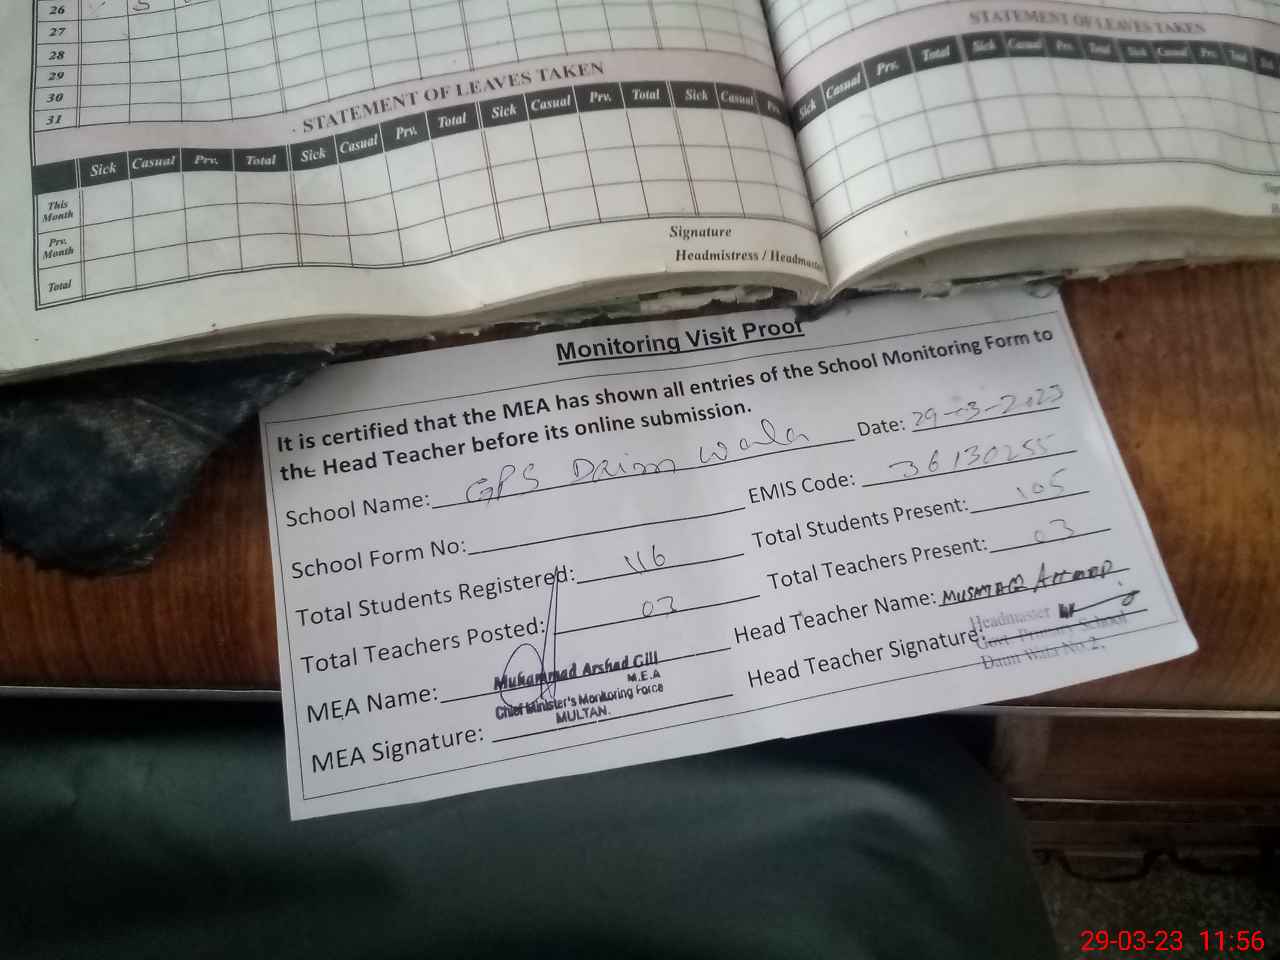 26
27
28
29
30
31
STATEMENT OF LEAVES TAKEN
Sick Casual Prv. Total Sick Casual Prv. Total Sick Casual Prv. Total Sick Casual Prv.
This Month
Prv. Month
Total
Signature
Headmistress / Headmaster
STATEMENT OF LEAVES TAKEN
Sick Casual Prv. Total Sick Casual Prv. Total Sick Casual Prv. Total
Monitoring Visit Proof
It is certified that the MEA has shown all entries of the School Monitoring Form to
the Head Teacher before its online submission.
School Name: GPS Wala Date: 29-03-2023
School Form No: EMIS Code: 36130255
Total Students Registered: 116 Total Students Present: 105
Total Teachers Posted: 03 Total Teachers Present: 03
MEA Name: Muhammad Arshad Gill Head Teacher Name: MUSHTAQ AHMAD
M.E.A
Chief Minister's Monitoring Force
MULTAN.
MEA Signature: Head Teacher Signature:
Headmaster
Govt. Primary School
Wala No. 2.
29-03-23 11:56